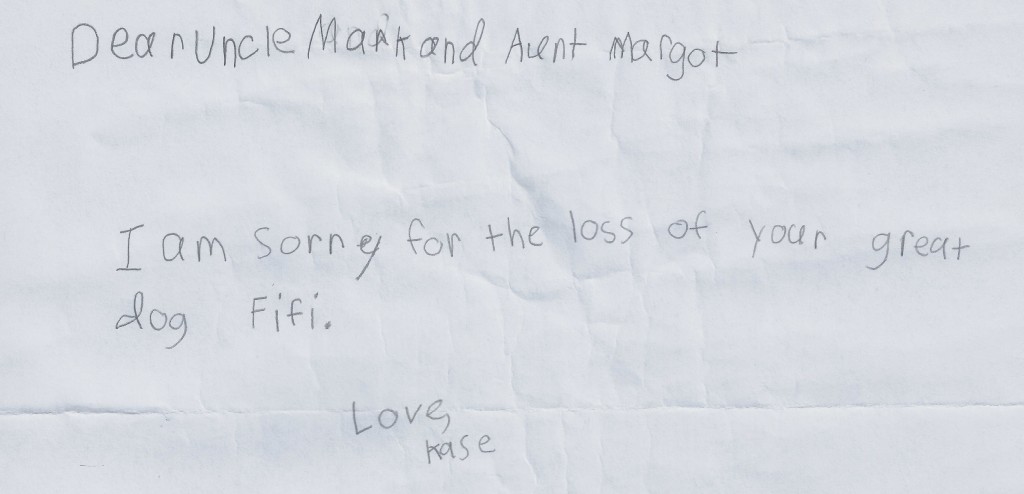 Dear Uncle Mark and Aunt Margot
I am Sorry for the loss of your great
dog Fifi.
Love,
Kase